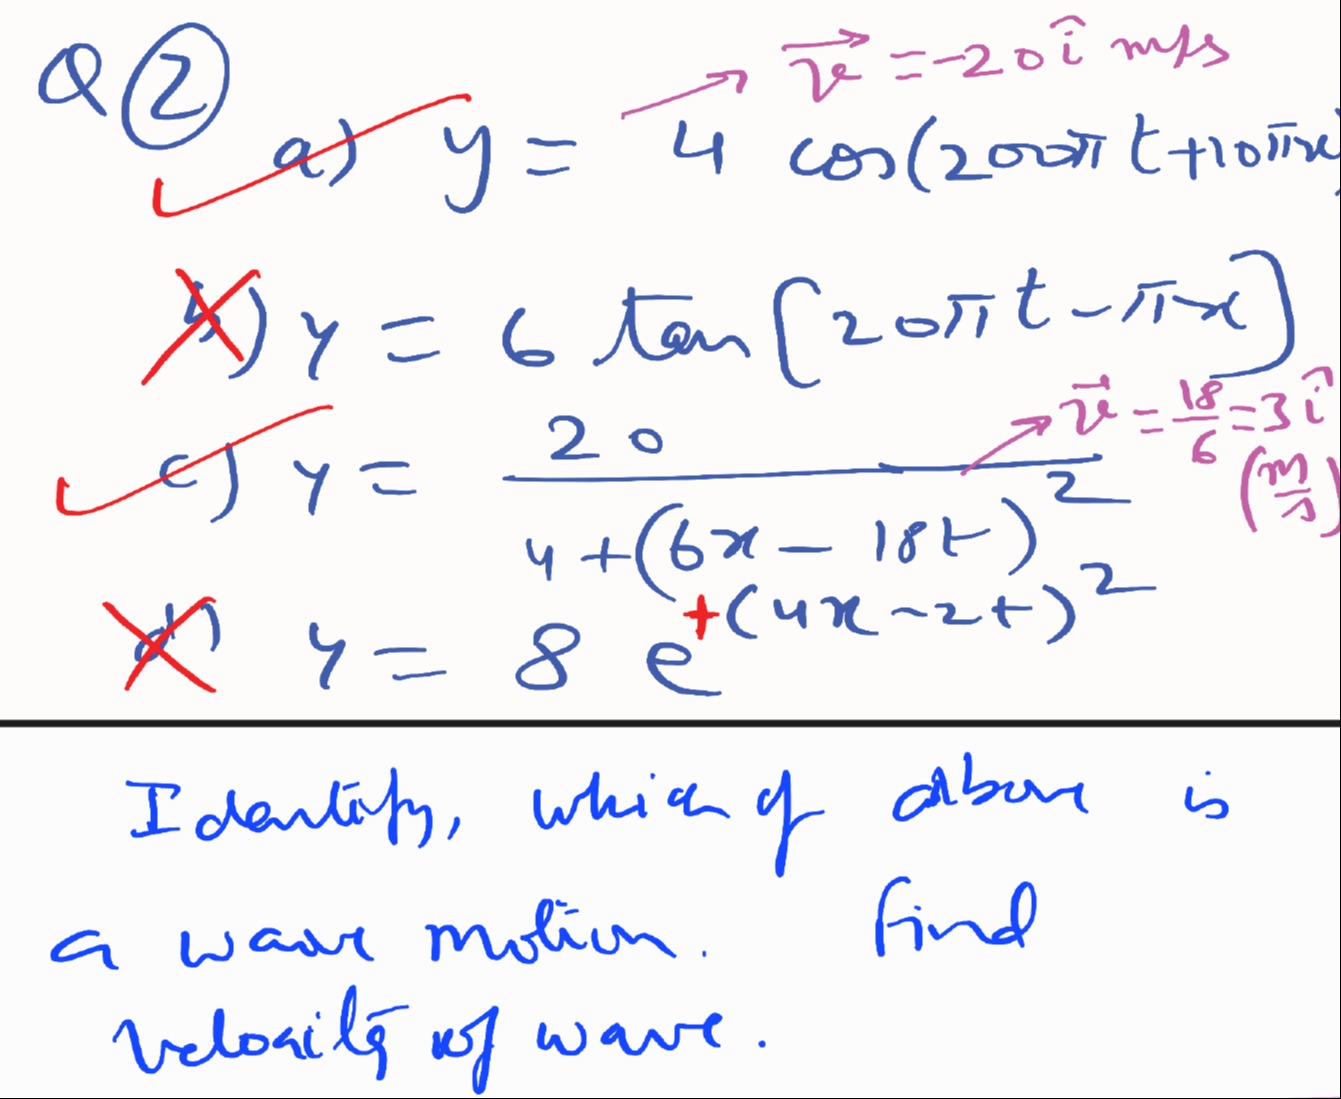 Q 2
v⃗ = -20 î m/s
a) y = 4 cos(200π t + 10πx)
b) y = 6 tan[20π t - πx]
v⃗ = 18/6 = 3 î (m/s)
c) y = 20 / (4 + (6x - 18t)²)
d) y = 8 e^+(4x - 2t)²
Identify, which of above is
a wave motion. Find
velocity of wave.